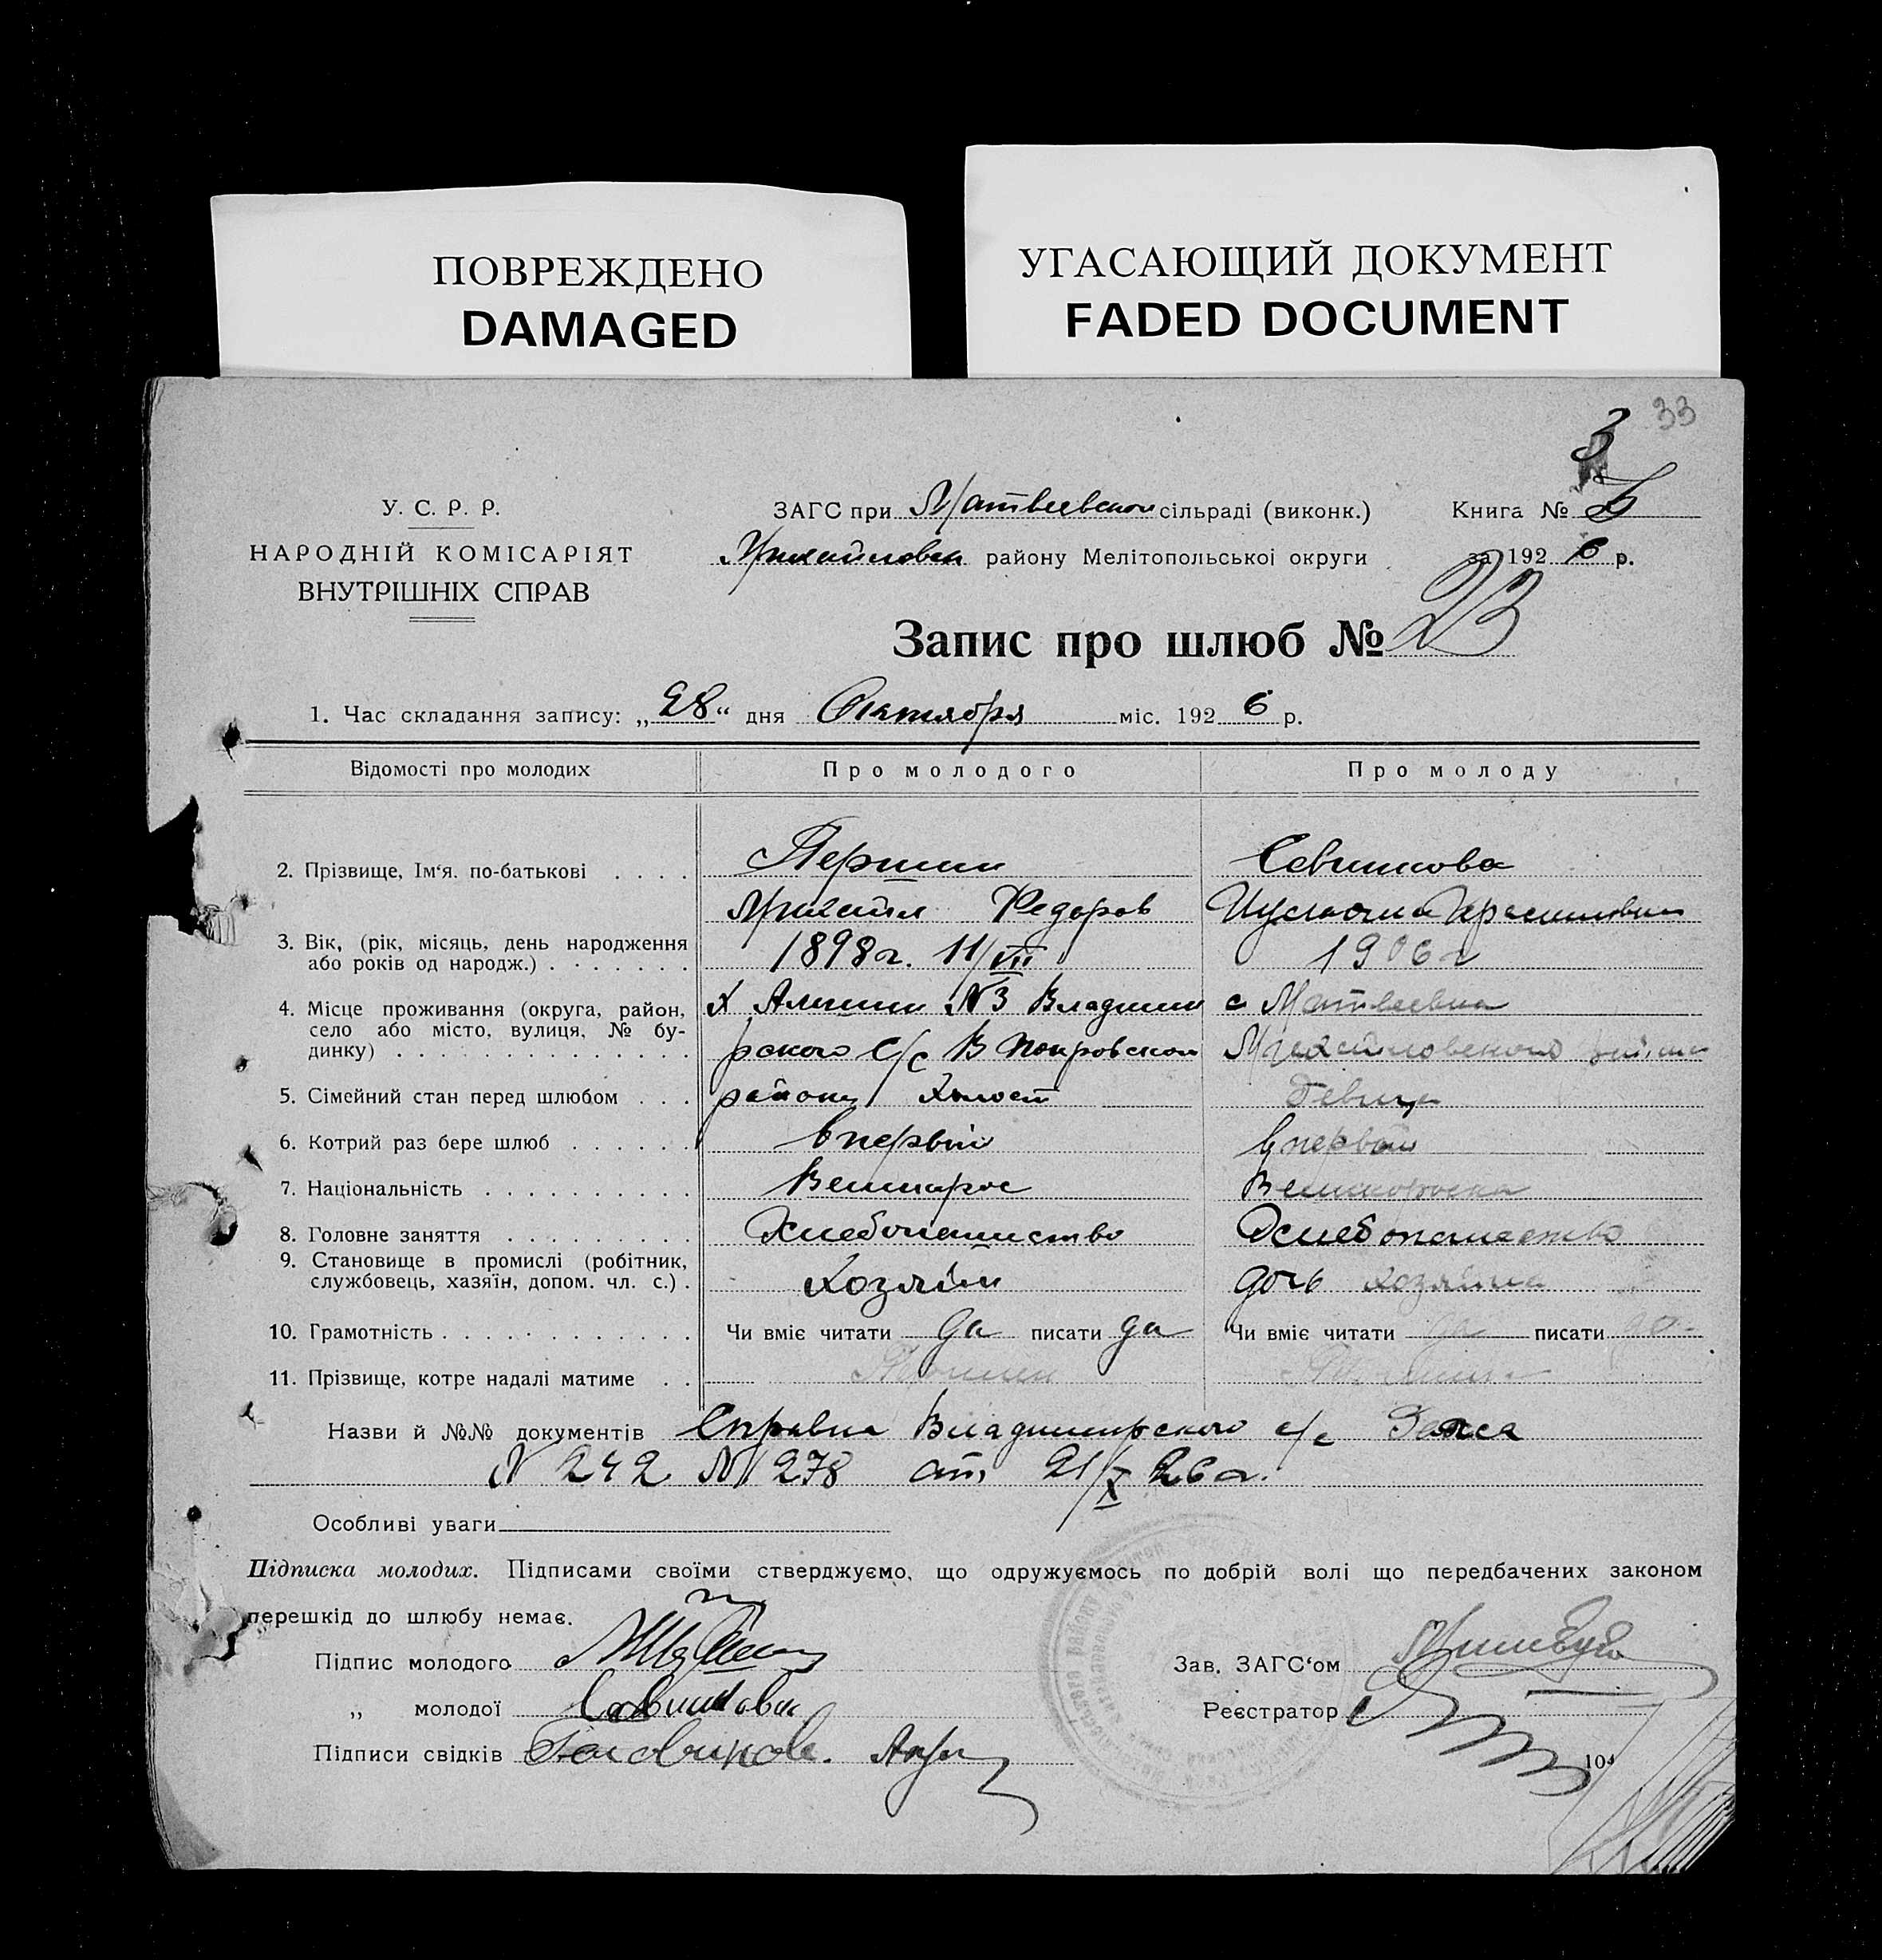 ПОВРЕЖДЕНО
DAMAGED
УГАСАЮЩИЙ ДОКУМЕНТ
FADED DOCUMENT
33
3
У. С. Р. Р.
НАРОДНІЙ КОМІСАРІЯТ
ВНУТРІШНІХ СПРАВ
ЗАГС при Матвеевском сільраді (виконк.)
Михайловск району Мелітопольської округи
Книга № 5
за 1926 р.
Запис про шлюб № 23
1. Час складання запису: „28“ дня Октября міс. 1926 р.
Відомості про молодих
Про молодого
Про молоду
2. Прізвище, Ім‘я. по-батькові
Першин
Михаил Федоров
Савинкова
3. Вік, (рік, місяць, день народження
або років од народж.)
1898 г. 11/VIII
1906 г
4. Місце проживання (округа, район,
село або місто, вулиця, № бу-
динку)
х №3 Владими
рского с/с В Покровском
району
с Матвеевка
Михайловского
5. Сімейний стан перед шлюбом
Холост
Девица
6. Котрий раз бере шлюб
Впервый
Впервый
7. Національність
Великорос
Великороска
8. Головне заняття
Хлебопашество
Хлебопашество
9. Становище в промислі (робітник,
службовець, хазяїн, допом. чл. с.)
Хозяин
дочь хозяина
10. Грамотність
Чи вміє читати да писати да
Чи вміє читати да писати да
11. Прізвище, котре надалі матиме
Назви й №№ документів Справка Владимирского с/с Загса
N 242 N 278 от 21/X 26 г.
Особливі уваги
Підписка молодих. Підписами своїми стверджуємо, що одружуємось по добрій волі що передбачених законом
перешкід до шлюбу немає.
Підпис молодого
„ молодої Савинкова
Підписи свідків
Зав. ЗАГС‘ом
Реєстратор
104